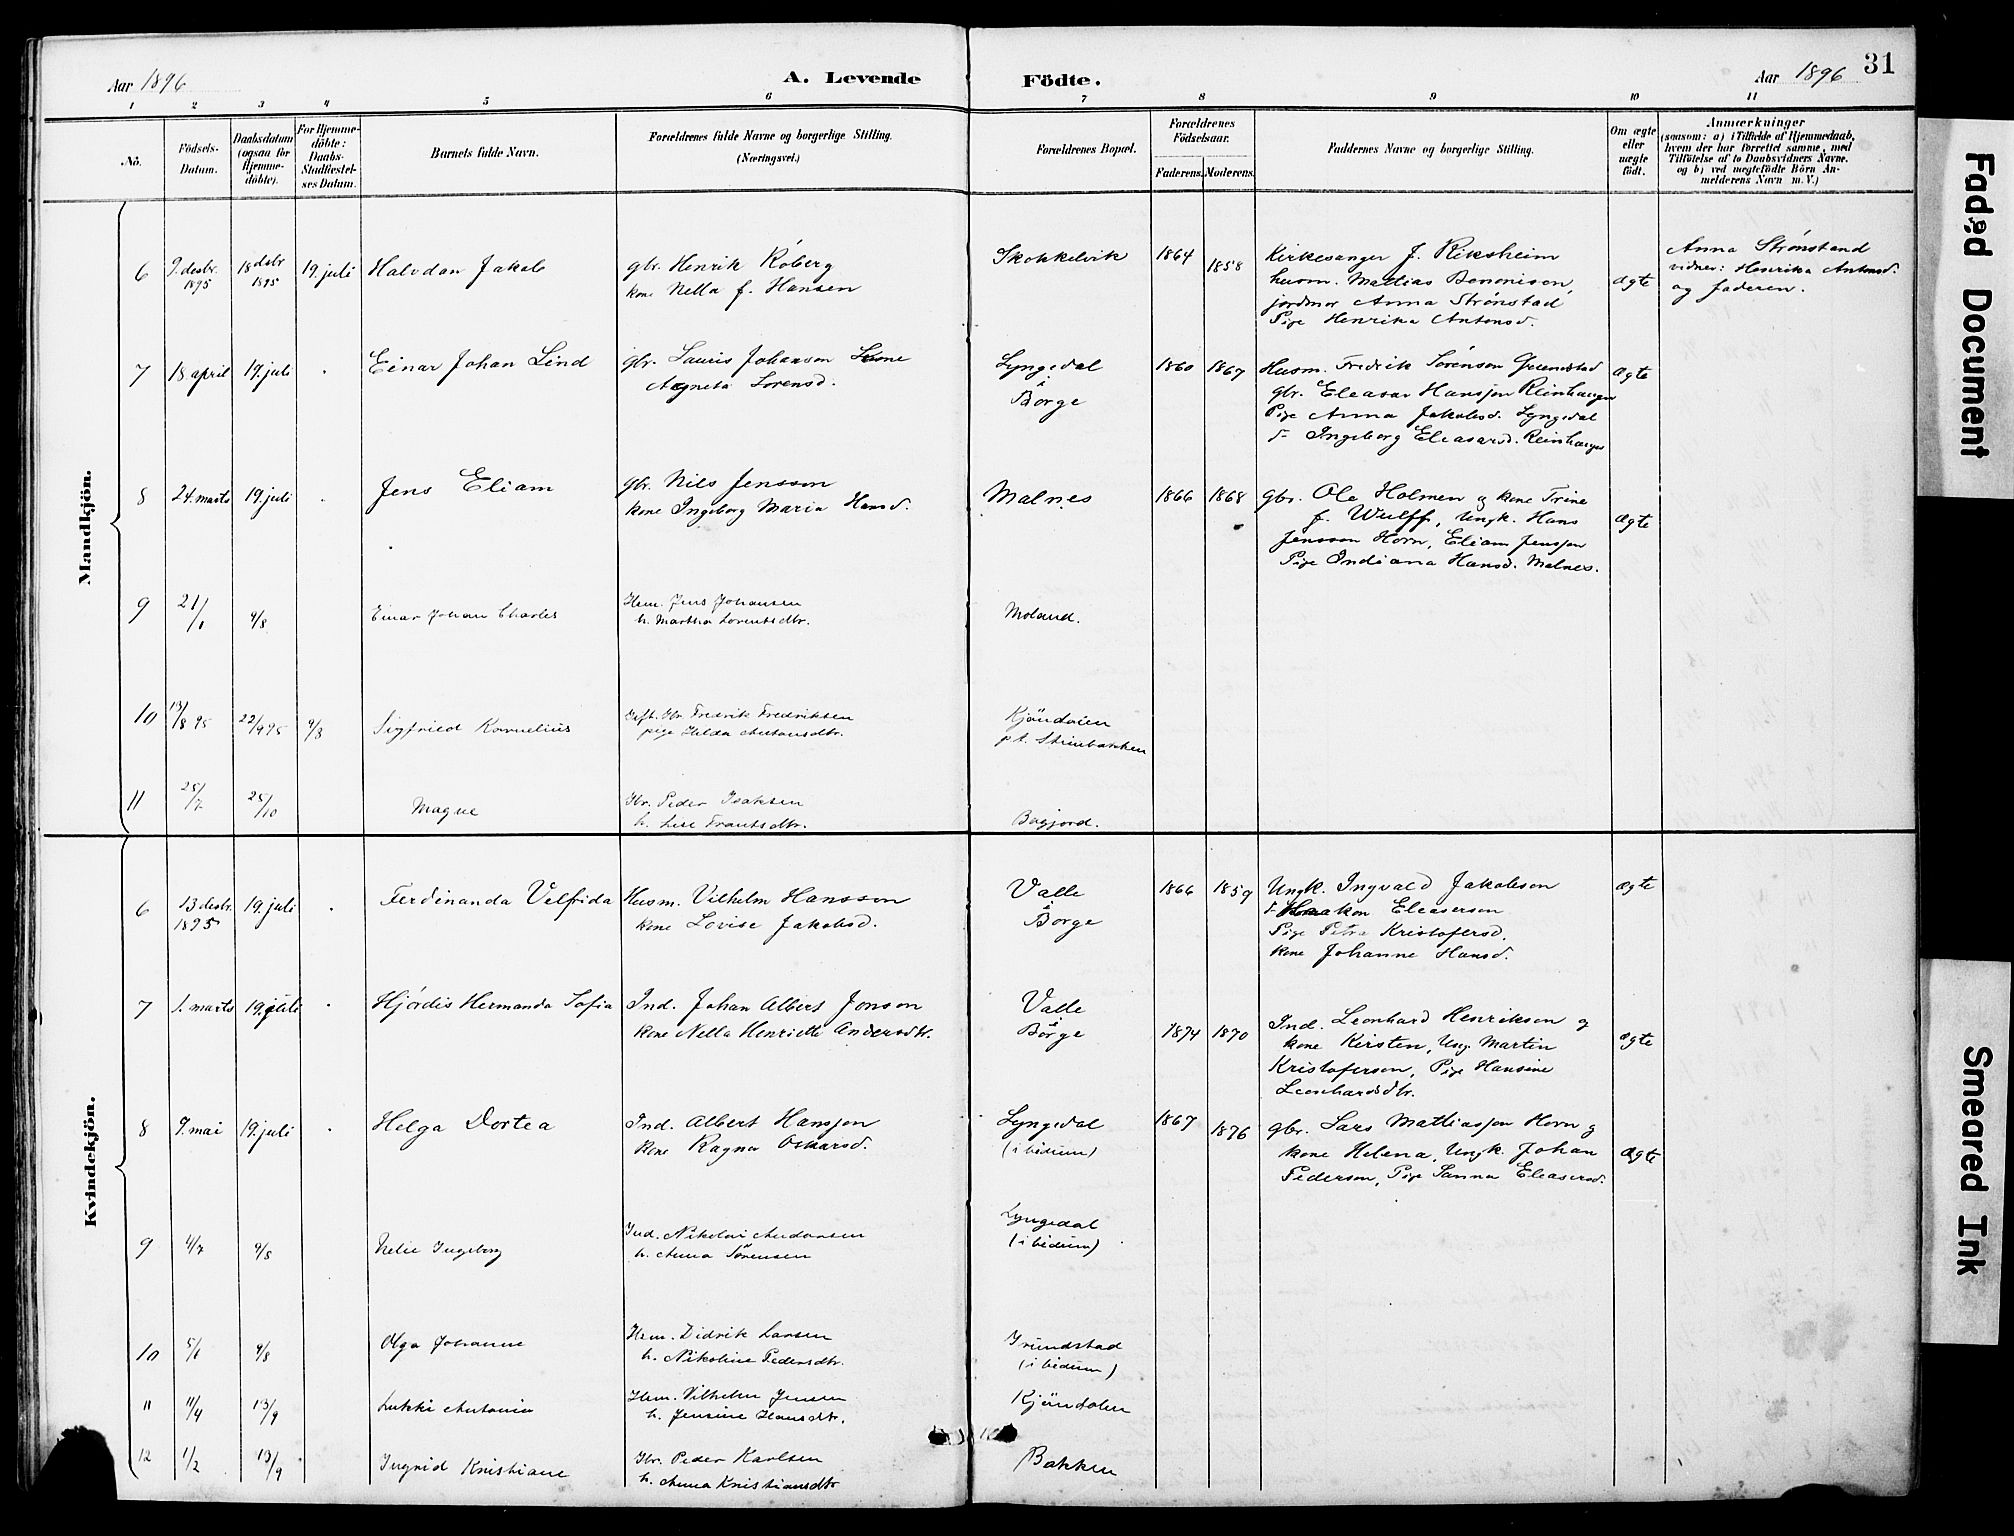 Aar 1896
A. Levende Födte.
Aar 1896
31
1 2 3 4 5 6 7 8 9 10 11
No.
Födsels-
Datum.
Daabsdatum
(ogsaa for
Hjemme-
döbte).
For Hjemme-
döbte:
Daabs-
Stadfæstel-
ses Datum.
Barnets fulde Navn.
Forældrenes fulde Navne og borgerlige Stilling.
(Næringsvei.)
Forældrenes Bopæl.
Forældrenes
Födselsaar.
Faderens. Moderens.
Faddernes Navne og borgerlige Stilling.
Om ægte
eller
uægte
født.
Anmærkninger
(saasom: a) i Tilfælde af Hjemmedaab,
hvem der har forrettet samme, med
Tilföielse af to Daabsvidners Navne.
og b) ved uægtefödte Börn An-
melderens Navn m. V.)
Mandkjön.
6 9. desbr. 1895 18 desbr 1895 19. juli Halvdan Jakob
gbr. Henrik Róberg
kone Nella f. Hansen
Skokkelvik 1864 1858
Kirkesanger J. Riksheim
husm. Matias Benonisen,
jordmor Anna Strønstad
Pige Henrika Antonsd.
ægte
Anna Strønstand
vidner: Henrika Antonsd.
og faderen.
7 18 april 19. juli Einar Johan Lind
gbr. Lauris Johanson kone
Agneta Sorensd.
Lyngedal
i
Borge
1860 1867
Husm. Fredrik Sørenson Grundstad
gbr. Eleasar Hansson Reinhaugen
Pige Anna Jakobsd. Lyngedal
d- Ingeborg Eleasarsd. Reinhaugen
ægte
8 24. marts 19. juli Jens Eliam
gbr. Nils Jensson
kone Ingeborg Maria Hansd.
Malnes 1866 1868
gbr. Ole Holmen og kone Trine
f. Wulff, Ungk. Hans
Jensson Horn, Eliam Jensson
Pige Indiana Hansd. Malnes.
ægte
9 21/1 9/8 Einar Johan Charles
Hsm. Jens Johansen
h. Martha Lorentsdtr.
Moland.
10 13/8 95 22/9 95 9/8 Sigfried Kornelius
Gbr. Fredrik Fredriksen
pige Hilda Antonsdtr.
Kjöndalen
pt. Steinbakken
11 25/7 25/10 Magne
Gbr. Peder Isaksen
h. Lise Frantsdtr.
Bøgjord.
Kvindekjön.
6 13 desbr. 1895 19. juli Ferdinanda Velfrida
Husm. Vilhelm Hansson
kone Lovise Jakobsd.
Valle
i
Borge
1866 1859
Ungk. Ingvald Jakobson
d- Haakon Eleaserson
Pige Petra Kristofersd.
kone Johanne Hansd.
ægte
7 1. marts 19. juli Hjørdis Hermanda Sofia
Ind. Johan Albert Jonson
kone Nella Henriette Andersdtr.
Valle
i
Borge
1874 1870
Ind. Leonhard Henrikson og
kone Kirsten, Ung. Martin
Kristoferson, Pige Hansine
Leonhardsdtr.
ægte
8 9. mai 19. juli Helga Dortea
Ind. Albert Hansson
kone Ragna Oskarsd.
Lyngedal
(ibidum)
1867 1876
gbr. Lars Mathiasson Horn og
kone Helena, Ungk. Johan
Pederson, Pige Sanna Eleasersd.
ægte
9 4/7 9/8 Nelie Ingeborg
Ind. Nikolai Andersen
h. Anna Sörensen
Lyngedal
(ibidum)
10 5/1 9/8 Olga Johanne
Hsm. Didrik Larsen
h. Nikoline Pedersdtr.
Grundstad
(ibidum)
11 11/4 13/9 Lukki Antonia
Hsm. Vilhelm Jensen
h. Jensine Hansdtr.
Kjöndalen
12 1/2 13/9 Ingrid Kristiane
Gbr. Peder Karlsen
h. Anna Kristiansdtr
Bakken
Faded Document
Smeared Ink